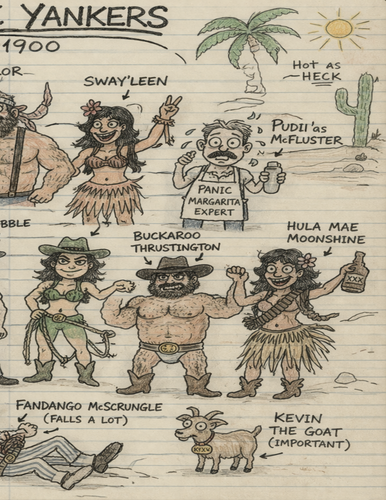 YANKERS
1900
HOT AS
HECK
SWAY'LEEN
PUDII'AS
McFLUSTER
PANIC
MARGARITA
EXPERT
BBLE
BUCKAROO
THRUSTINGTON
HULA MAE
MOONSHINE
XXX
FANDANGO McSCRUNGLE
(FALLS A LOT)
KEVIN
THE GOAT
(IMPORTANT)